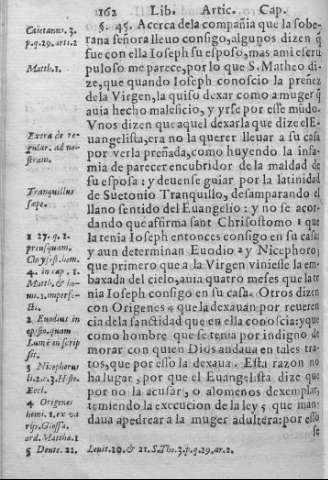 162 Lib. Artic. Cap.
§. 45. Acerca dela compañia que la sobe-
rana señora lleuo consigo, algunos dizen q̃
fue con ella Ioseph su esposo, mas ami escru
puloso me parece, por lo que S. Matheo di-
ze, que quando Ioseph conoscio la preñez
de la Virgen, la quiso dexar como a muger q̃
auia hecho maleficio, y yrse por esse mũdo.
Vnos dizen que aquel dexarla que dize el E-
uangelista, era no la querer lleuar a su casa
por verla preñada, como huyendo la infa-
mia de parecer encubridor de la maldad de
su esposa: y deuense guiar por la latinidad
de Suetonio Tranquillo, desamparando el
llano sentido del Euangelio: y no se acor-
dando que affirma sant Chrisostomo 1 que
la tenia Ioseph entonces consigo en su casa:
y aun determinan Euodio 2 y Nicephoro 3
que primero que a la Virgen viniesse la em-
baxada del cielo, auia quatro meses que la te
nia Ioseph consigo en su casa. Otros dizen
con Origenes 4 que la dexauan por reueren
cia dela sanctidad que en ella conoscia: y que
como hombre que se tenia por indigno de
morar con quien Dios andaua en tales tra-
tos, que por esso la dexaua. Esta razon no
ha lugar, por que el Euangelista dize que
por no la acusar, o alomenos dexemplar,
temiendo la execucion de la ley 5 que man-
daua apedrear a la muger adultera: por esso
§
Caietanus. 3.
p. q. 29. art. 2
Matth. 1.
Extra de re-
gular. ad no-
stram.
Tranquillus
sæpe.
1 27. q. 2.
priusquam.
Chrysost. hom.
4. in cap. 1.
Matth. & ho-
mi. 1. imperfe-
cti.
2 Euodius in
episto. quam
Lumẽ inscrip
sit.
3 Nicephorus
li. 2. c. 3. Histo.
Eccl.
4 Origenes
homi. 1. ex va
rijs. Glossa.
ord. Matthæ. 1
5 Deute. 22. Leuit. 20. & 21. S. Tho. 3. p. q. 29. ar. 2.